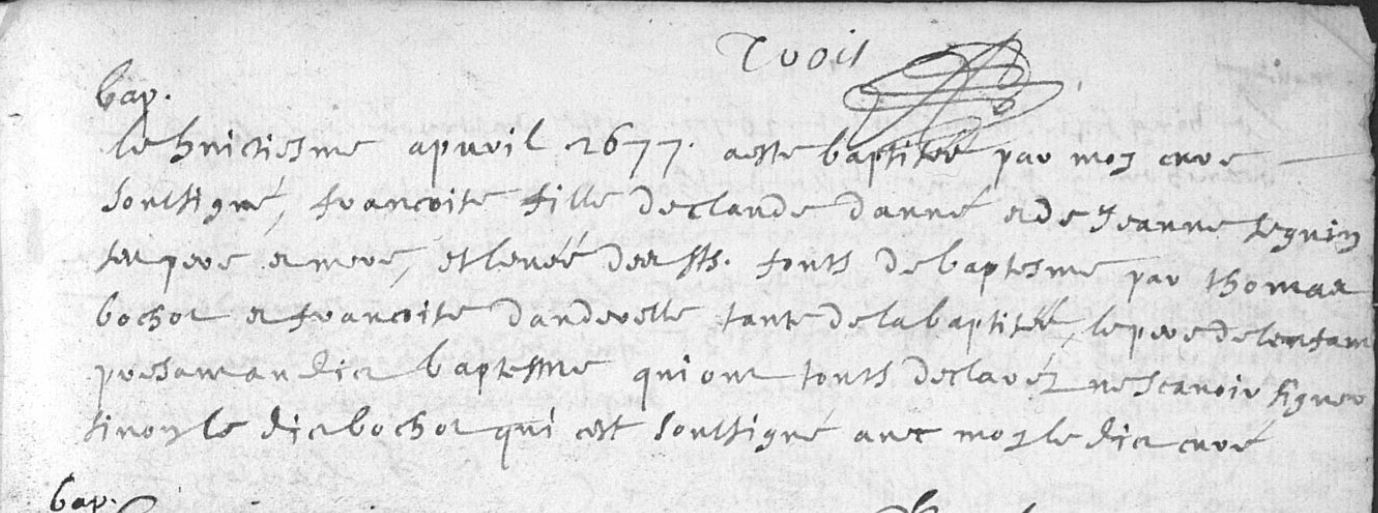 Trois
bap.
le huictiesme apuril 1677. a esté baptisée par moy curé
soussigné, francoise fille de claude danré et de Jeanne seguin
ses pere et mere, et levéé des sts. fonts de baptesme par thomas
bochot et francoise danderelle tante de la baptiséé, le pere de lenfant
present au dict baptesme qui ont touts declaréz ne scavoir signer
sinon le dict bochot qui est soussigné avec moy le dict curé
bap.